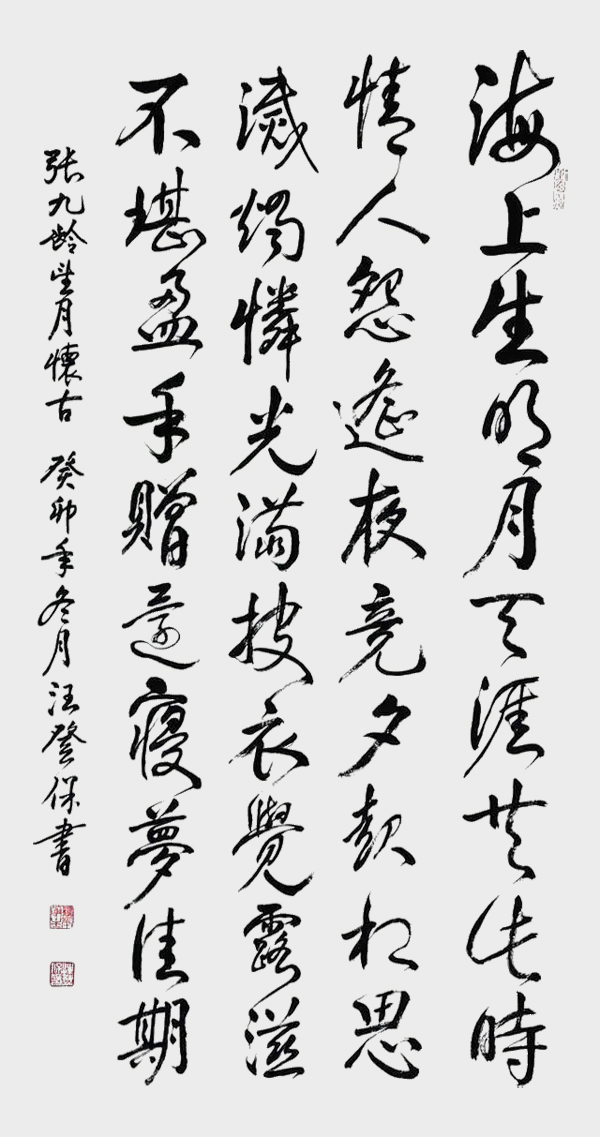 海上生明月天涯共此時
情人怨遙夜竟夕起相思
滅燭憐光滿披衣覺露滋
不堪盈手贈還寢夢佳期
張九齡望月懷古 癸卯年冬月汪登保書